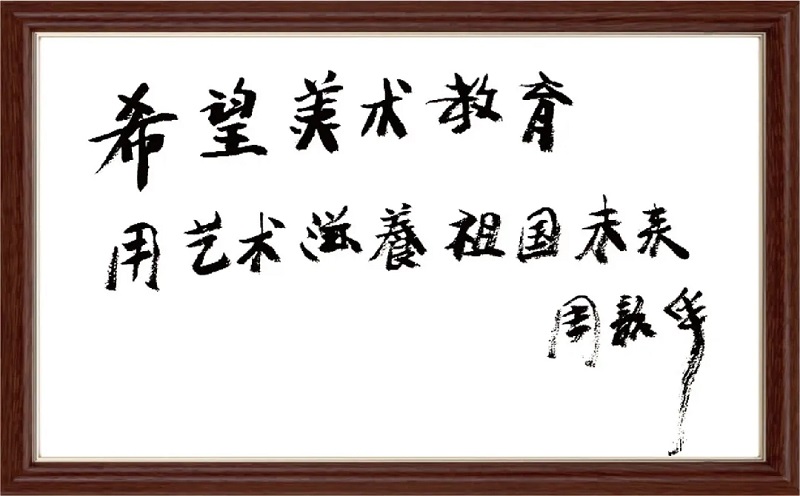 希望美术教育
用艺术滋養祖国未来
周韶华